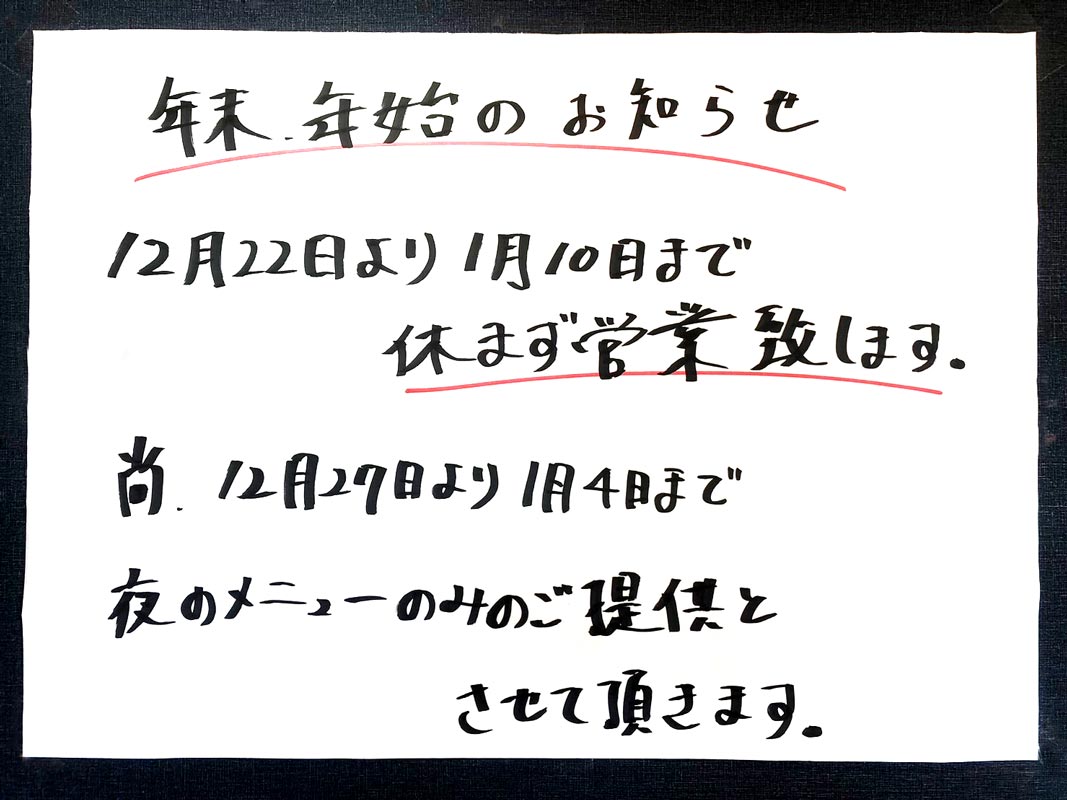 年末、年始のお知らせ
12月22日より1月10日まで
休まず営業致します。
尚、12月27日より1月4日まで
夜のメニューのみのご提供と
させて頂きます。